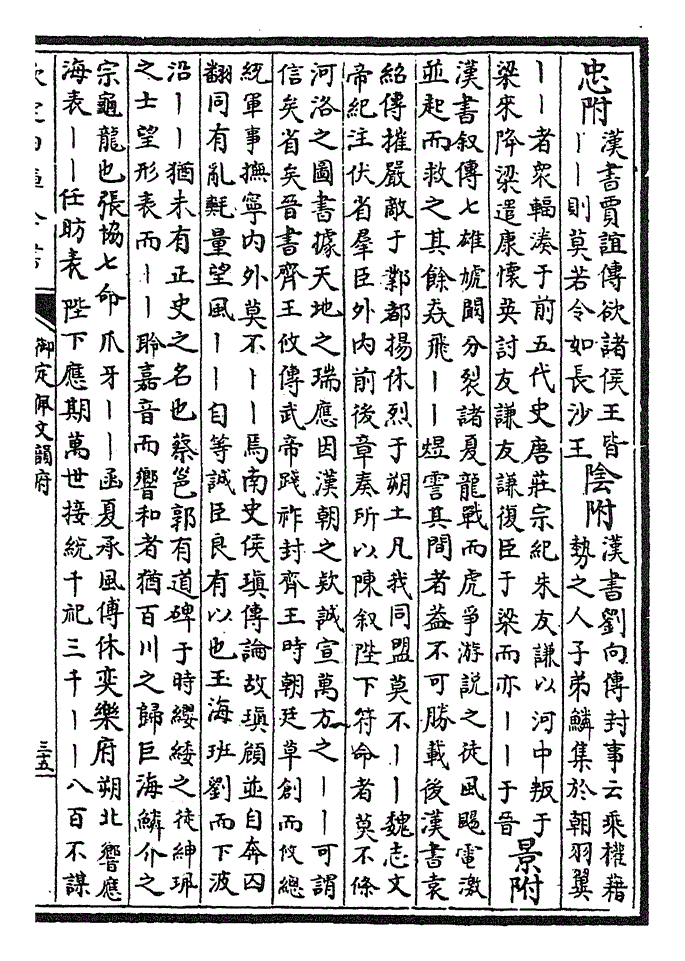 忠附
漢書賈誼傳欲諸侯王皆
丨丨則莫若令如長沙王
陰附
漢書劉向傳封事云乘權藉
勢之人子弟鱗集於朝羽翼
丨丨者衆輻湊于前五代史唐莊宗紀朱友謙以河中叛于
梁來降梁遣康懷英討友謙友謙復臣于梁而亦丨丨于晉
景附
漢書叙傳七雄虓闞分裂諸夏龍戰而虎爭游說之徒風颺電激
並起而救之其餘猋飛丨丨煜霅其間者葢不可勝載後漢書袁
紹傳摧嚴敵于鄴都揚休烈于朔土凡我同盟莫不丨丨魏志文
帝紀注伏省羣臣外内前後章奏所以陳叙陛下符命者莫不條
河洛之圖書據天地之瑞應因漢朝之欵誠宣萬方之丨丨可謂
信矣省矣晉書齊王攸傳武帝踐祚封齊王時朝廷草創而攸總
統軍事撫寧内外莫不丨丨焉南史侯瑱傳論故瑱顧並自奔囚
翻同有亂甿量望風丨丨自等誠臣良有以也玉海班劉而下波
沿丨丨猶未有正史之名也蔡邕郭有道碑于時纓緌之徒紳珮
之士望形表而丨丨聆嘉音而響和者猶百川之歸巨海鱗介之
宗龜龍也張協七命爪牙丨丨函夏承風傅休奕樂府朔北響應
海表丨丨任昉表陛下應期萬世接統千祀三千丨丨八百不謀
欽定四庫全書
御定佩文韻府
三五